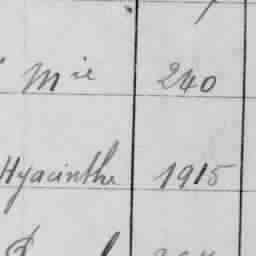 Mie 240
Hyacinthe 1915